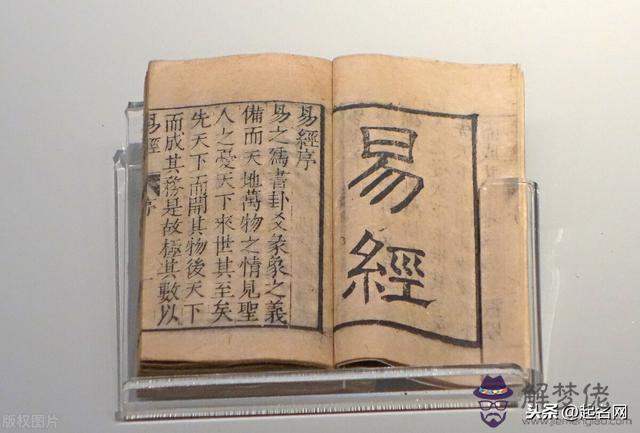 易經
易經序
易之爲書卦爻彖象之義
備而天地萬物之情見聖
人之憂天下來世其至矣
先天下而開其物後天下
而成其務是故極其數以
易經
序
版权图片
解梦佬
www.jiemenglao.com
头条@起名网